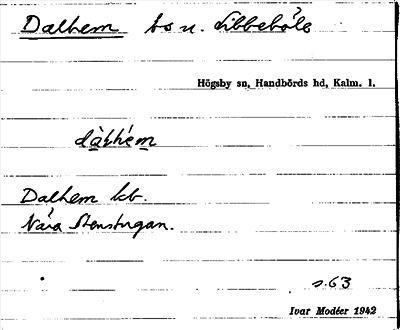 Dalhem bs u. Libbehåle
Högsby sn, Handbörds hd, Kalm. l.
dàlhém
Dalhem kb.
Nära Stenstugan.
s. 63
Ivar Modéer 1942